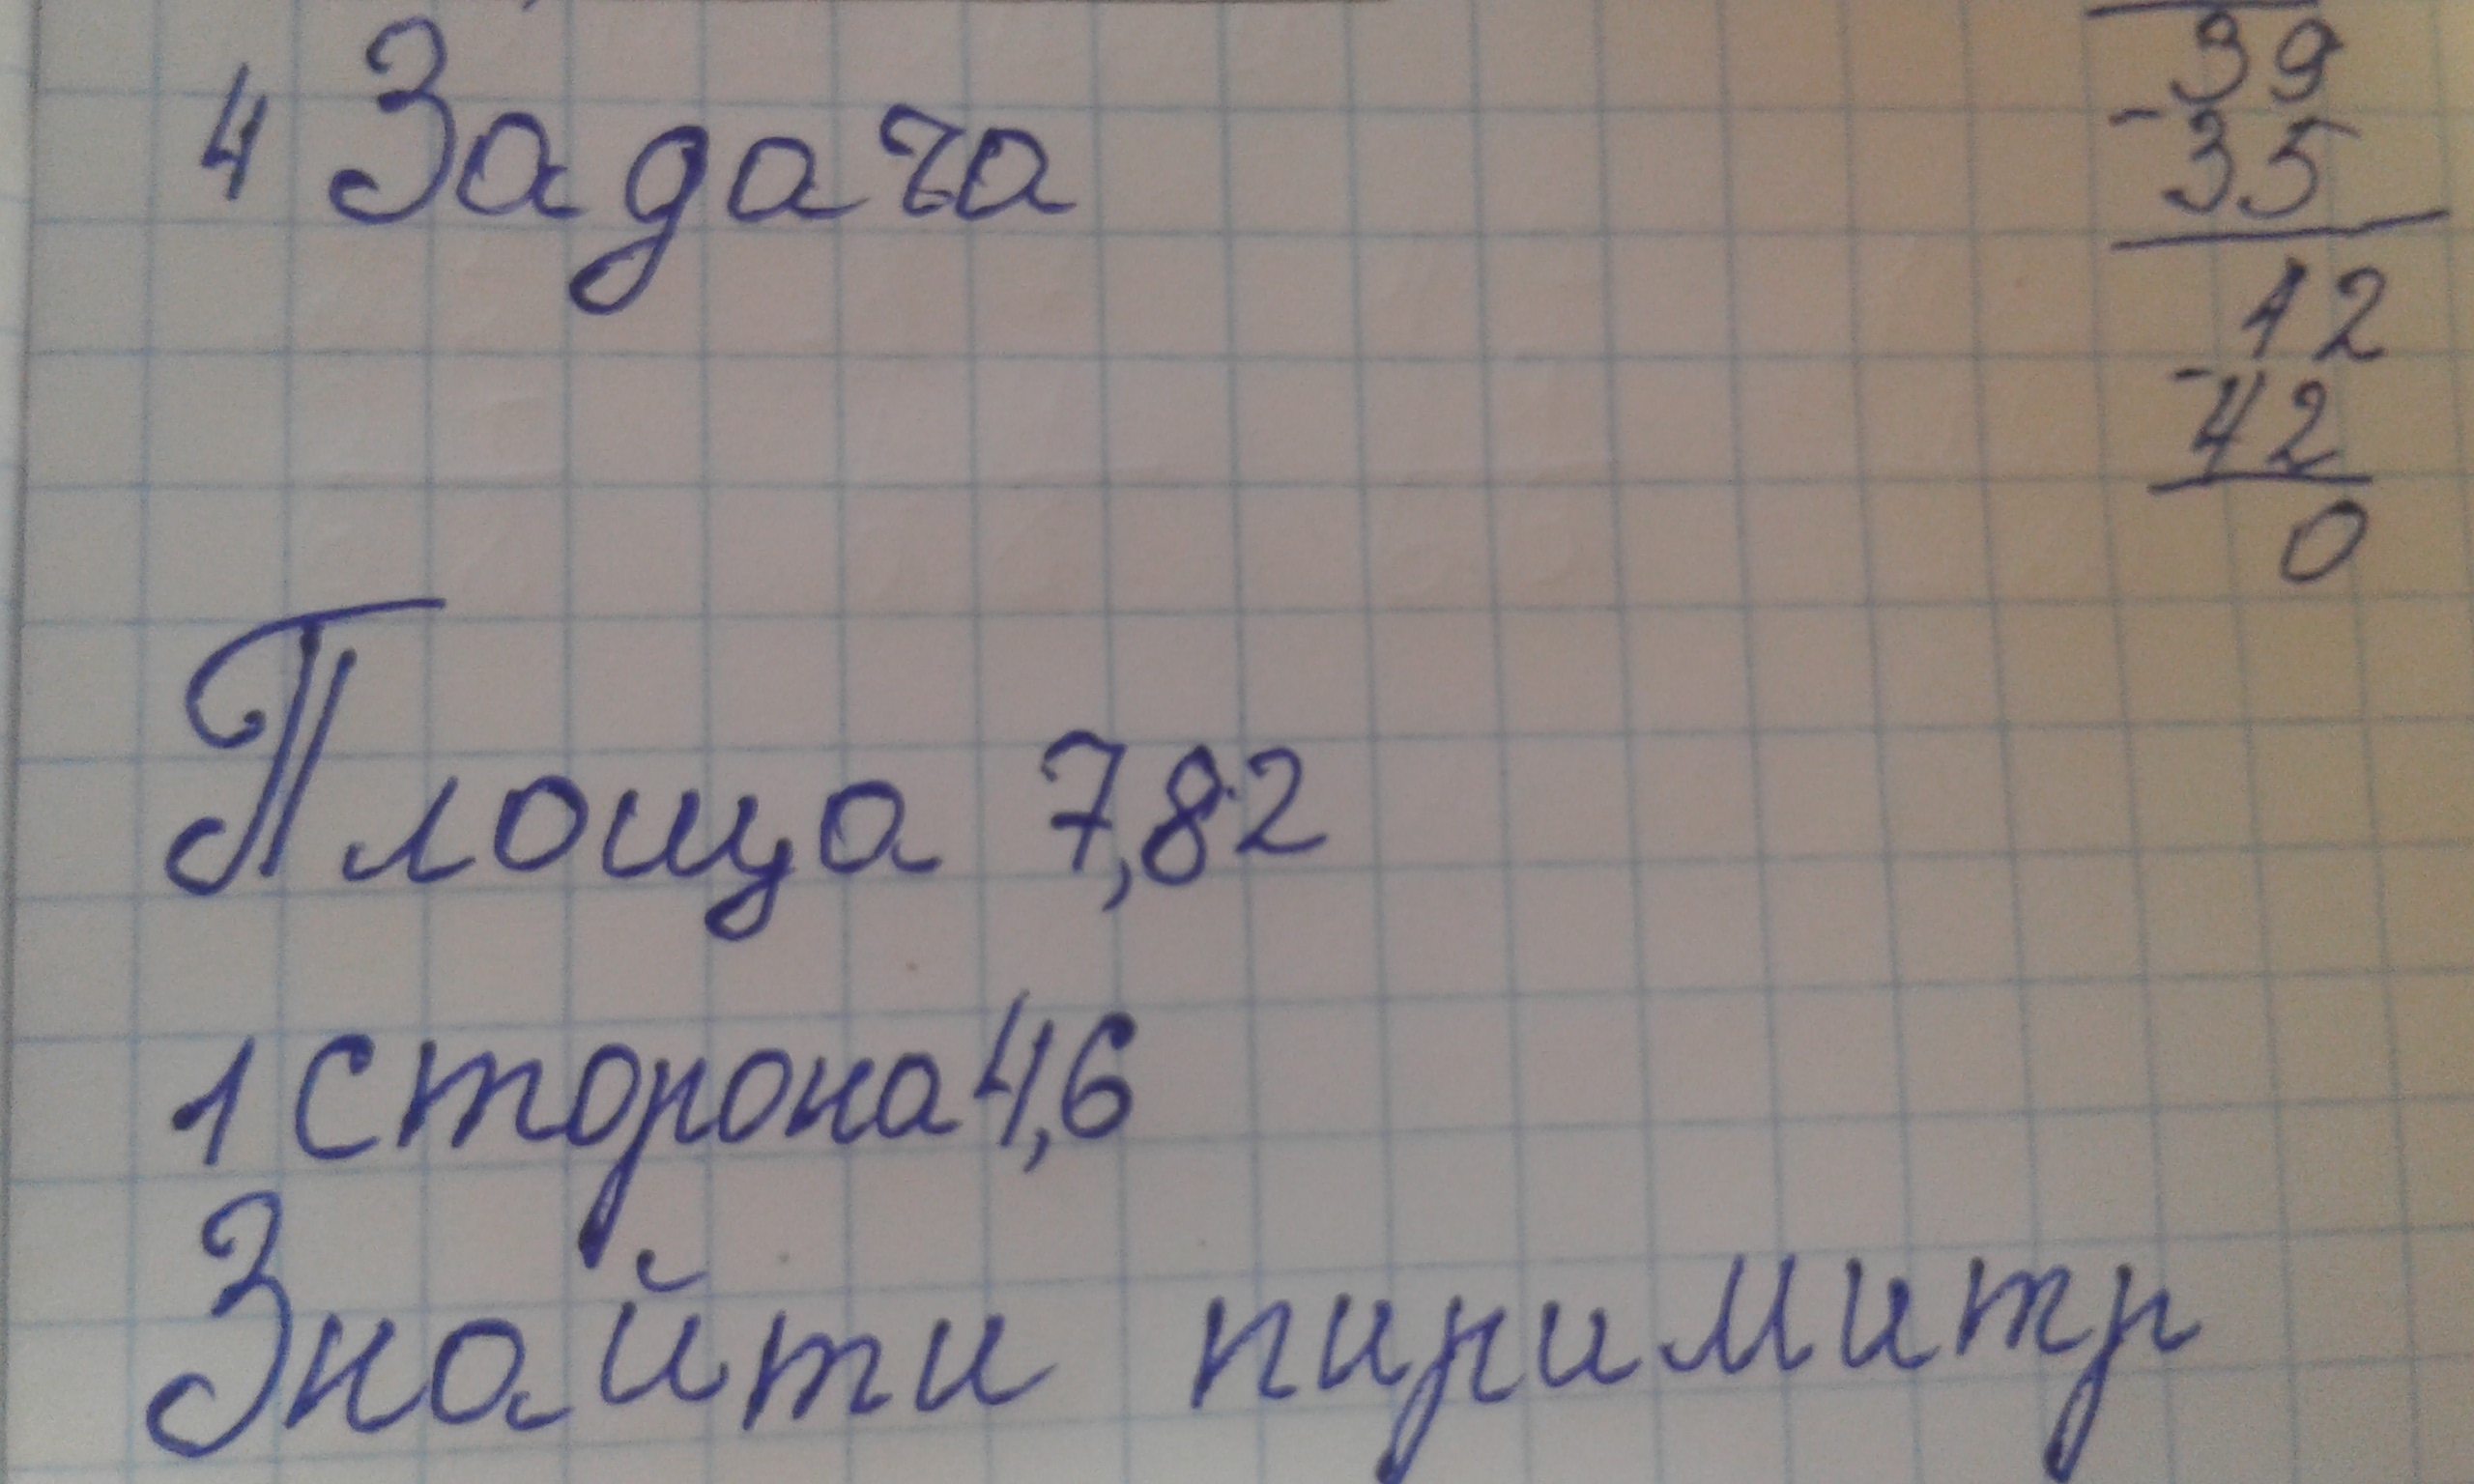 4 Задача
39
- 35
12
- 42
0
Площа 7,82
1 сторона 4,6
Знайти пириммитр